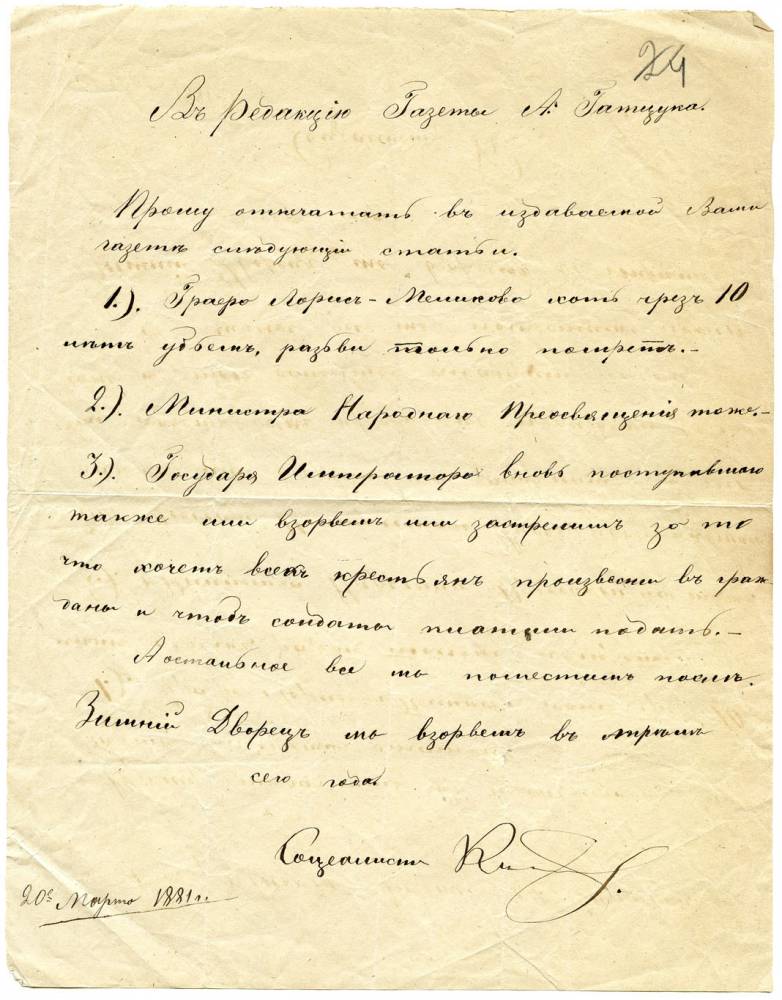 24
Въ Редакцію Газеты А. Гатцука.
Прошу отпечатать въ издаваемой Вами
газетѣ слѣдующіи статьи.
1.). Графа Лорисъ-Меликова хоть чрезъ 10
лѣтъ убьемъ, развѣ только помретъ.-
2.). Министра Народнаго Просвященія тоже.-
3.). Государя Императора вновь поступившаго
также или взорвемъ или застрелимъ за то
что хочетъ всехъ крестьянъ произвесть въ граж-
даны и чтобъ солдаты платили подать.-
А остальное все мы поместимъ послѣ.
Зимній Дворецъ мы взорвемъ въ
сего года
Социалистъ
20го Марта 1881 г.